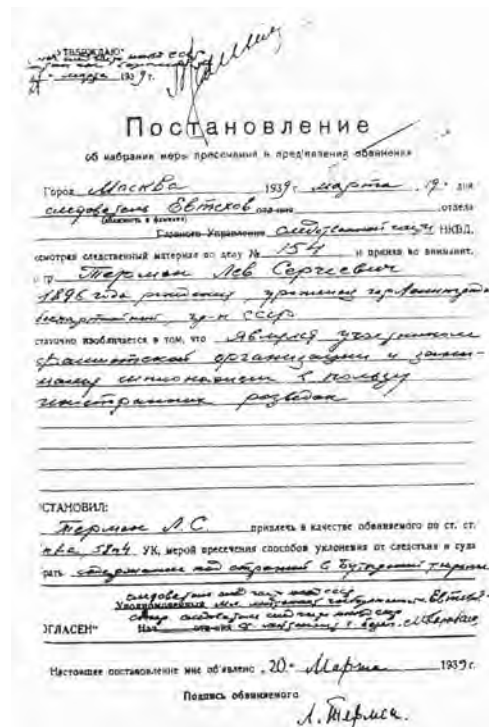 „УТВЕРЖДАЮ"
марта 1939 г.
Постановление
об избрании меры пресечения и пред'явления обвинения
Город Москва 1939 г. марта 19 дня
следователь Евтехов отдела
Главного Управления следственной части НКВД,
ссмотрев следственный материал по делу № 154 и приняв во внимание,
о гр. Термен Лев Сергеевич
1896 года рождения, уроженец гор Ленинграда
беспартийный, гр-н СССР
статочно изобличается в том, что является участником
фашистской организации и зани-
шпионажем в пользу
иностранных разведок
'СТАНОВИЛ:
Термен Л.С. привлечь в качестве обвиняемого по ст. ст.
УК, мерой пресечения способов уклонения от следствия и суда
рать содержание под стражей в Бутырской тюрьме
следователь след части НКВД СССР
Евтехов
ОГЛАСЕН"
Настоящее постановление мне об'явлено „20" Марта 1939 г.
Подпись обвиняемого
Л. Термен.